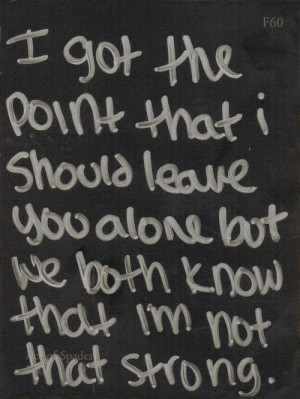 F60
I got the
point that i
should leave
you alone but
we both know
that i'm not
that strong.
Ace of Spades